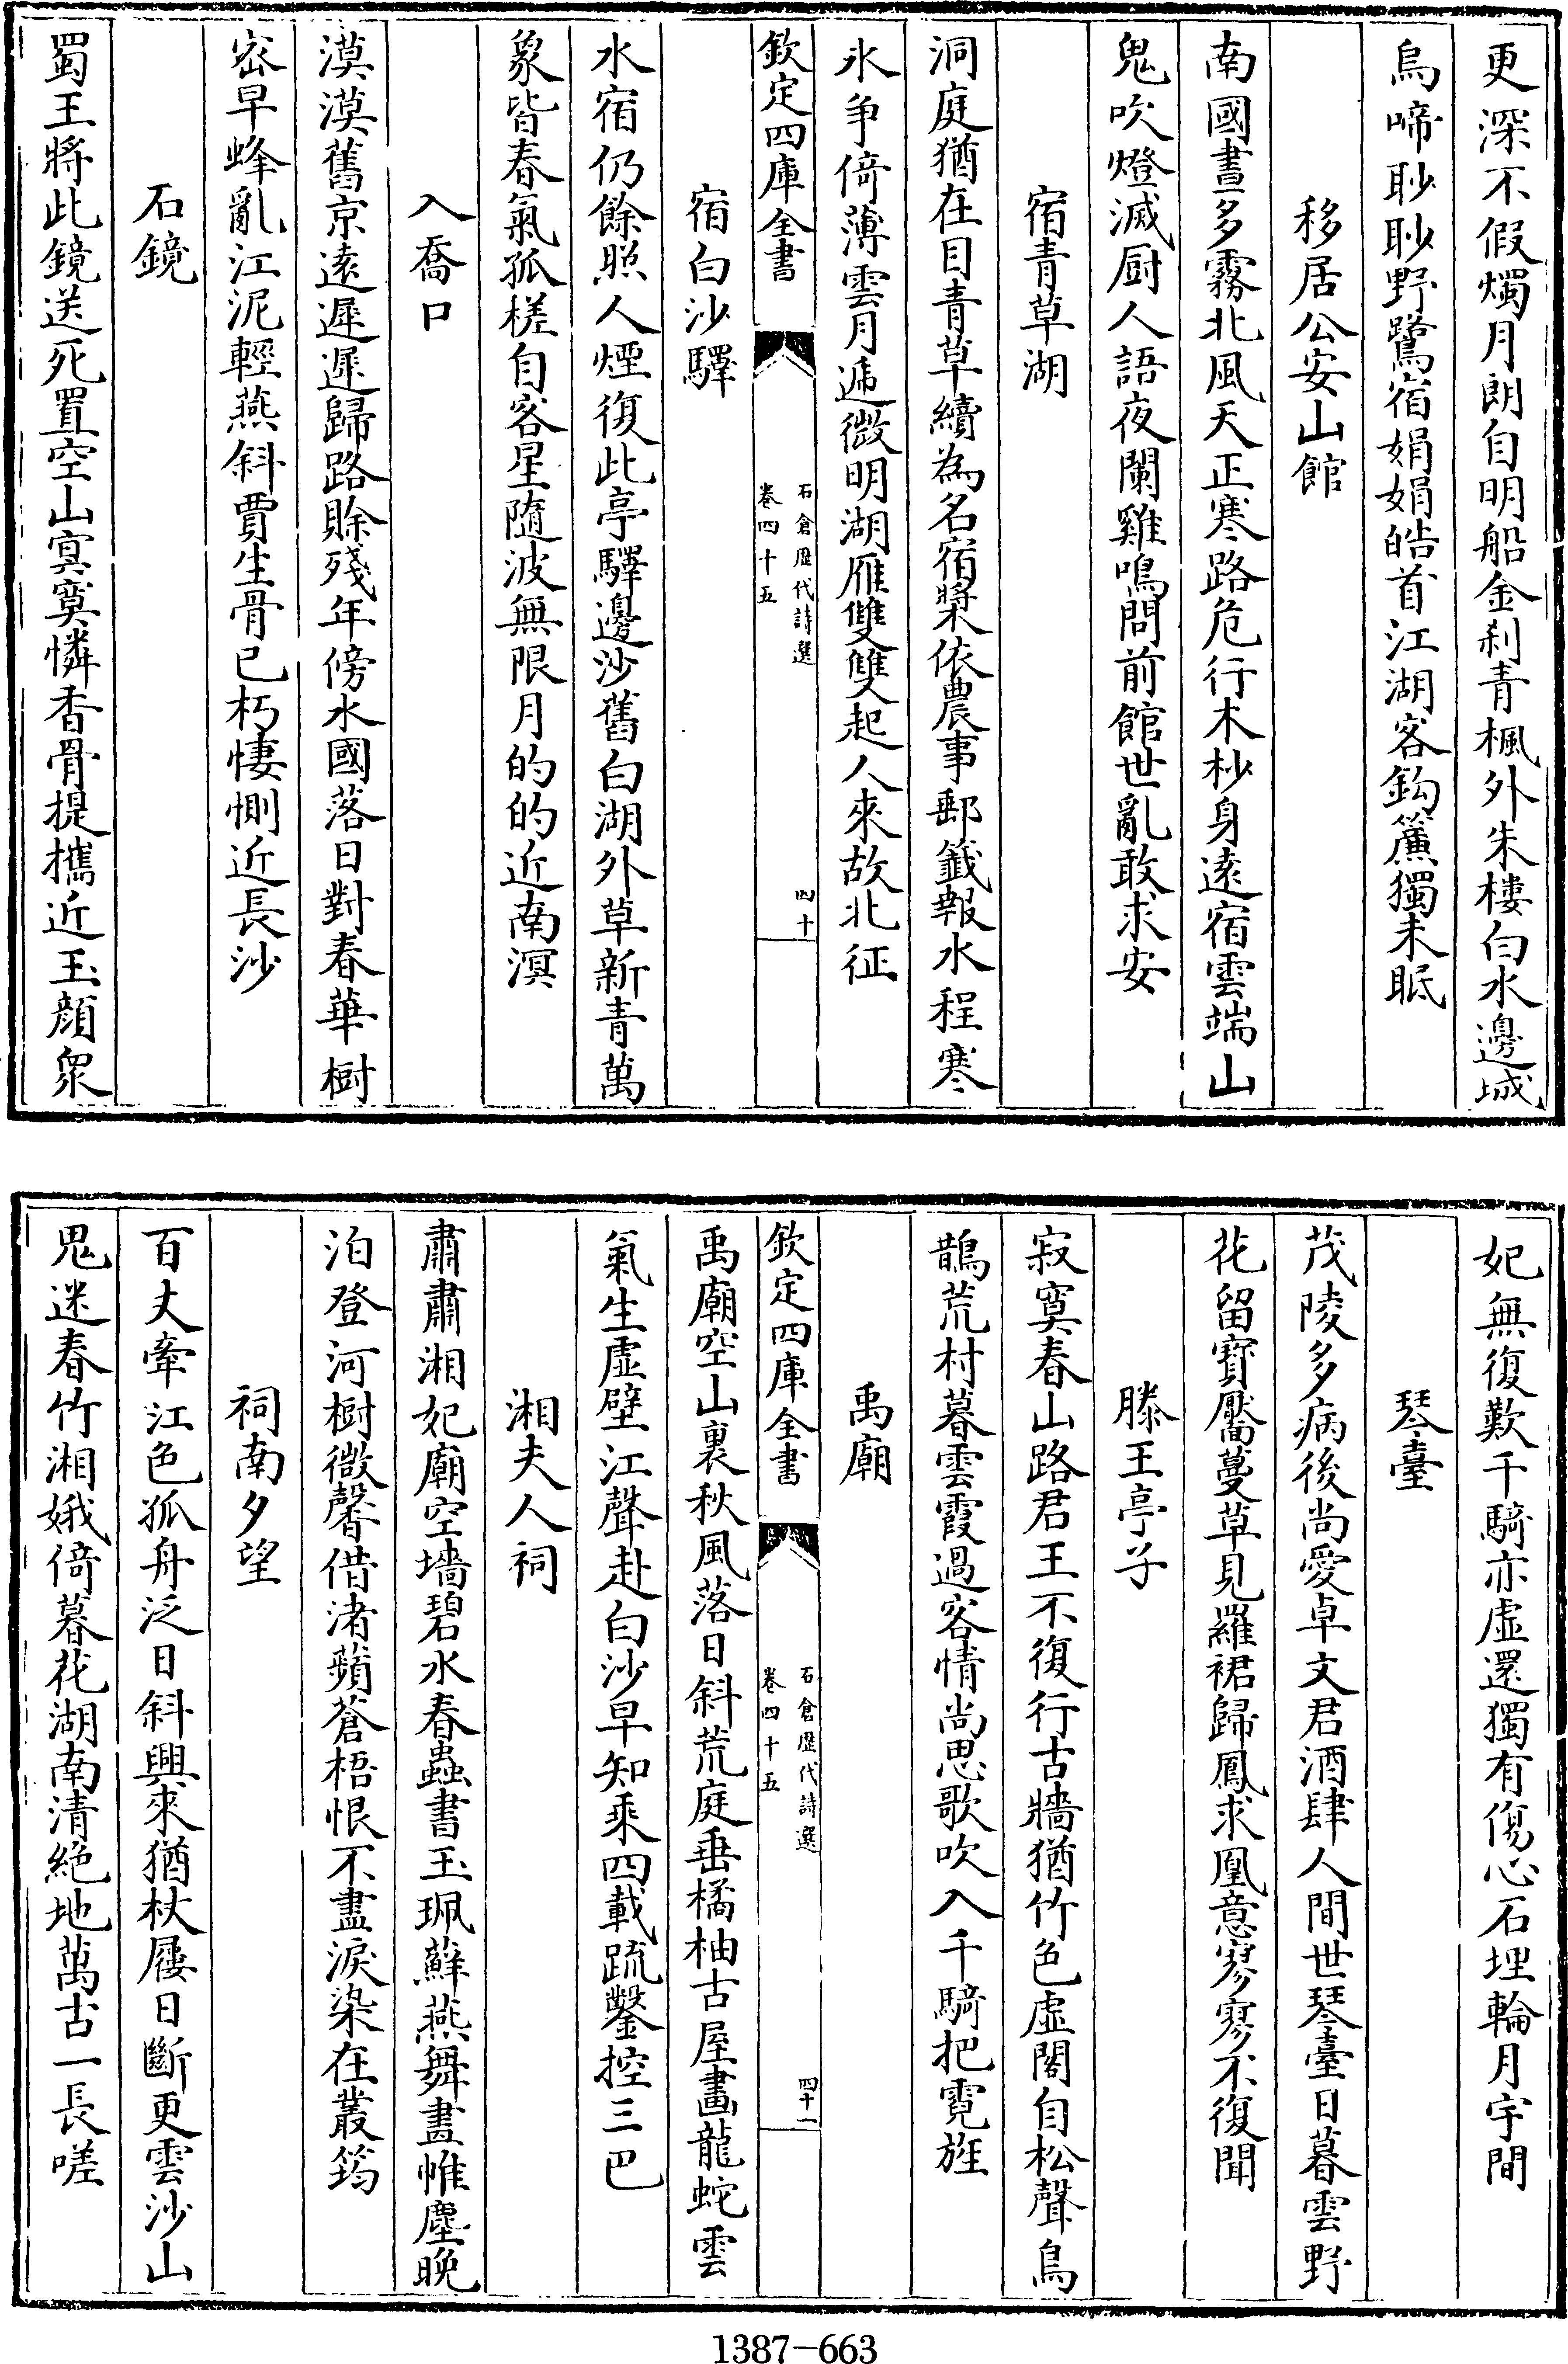 更深不假燭月朗自明船金刹青楓外朱樓白水邊城
烏啼眇眇野鷺宿娟娟皓首江湖客鈎簾獨未眠
移居公安山館
南國晝多霧北風天正寒路危行木杪身逺宿雲端山
鬼吹燈滅厨人語夜闌雞鳴問前館世亂敢求安
宿青草湖
洞庭猶在目青草續為名宿槳依農事郵籤報水程寒
氷爭倚薄雲月遞微明湖雁雙雙起人來故北征
欽定四庫全書
石倉歷代詩選
卷四十五
四十
宿白沙驛
水宿仍餘照人煙復此亭驛邊沙舊白湖外草新青萬
象皆春氣孤槎自客星隨波無限月的的近南溟
入喬口
漠漠舊京逺遲遲歸路賒殘年傍水國落日對春華樹
宻早蜂亂江泥輕燕斜賈生骨已朽悽惻近長沙
石鏡
蜀王將此鏡送死置空山㝠寞憐香骨提攜近玉顔衆
妃無復歎千騎亦虛還獨有傷心石埋輪月宇間
琴臺
茂陵多病後尚愛卓文君酒肆人間世琴臺日暮雲野
花留寶靨蔓草見羅裙歸鳳求凰意寥寥不復聞
滕王亭子
寂寞春山路君王不復行古牆猶竹色虛閣自松聲鳥
鵲荒村暮雲霞過客情尚思歌吹入千騎把霓旌
禹廟
欽定四庫全書
石倉歷代詩選
卷四十五
四十一
禹廟空山裏秋風落日斜荒庭垂橘柚古屋畫龍蛇雲
氣生虛壁江聲赴白沙早知乘四載疏鑿控三巴
湘夫人祠
肅肅湘妃廟空墻碧水春蟲書玉珮蘚燕舞畫帷塵晚
泊登河樹微馨借渚蘋蒼梧恨不盡淚染在叢筠
祠南夕望
百丈牽江色孤舟泛日斜興來猶杖屨日斷更雲沙山
鬼迷春竹湘娥倚暮花湖南清絶地萬古一長嗟
1387-663